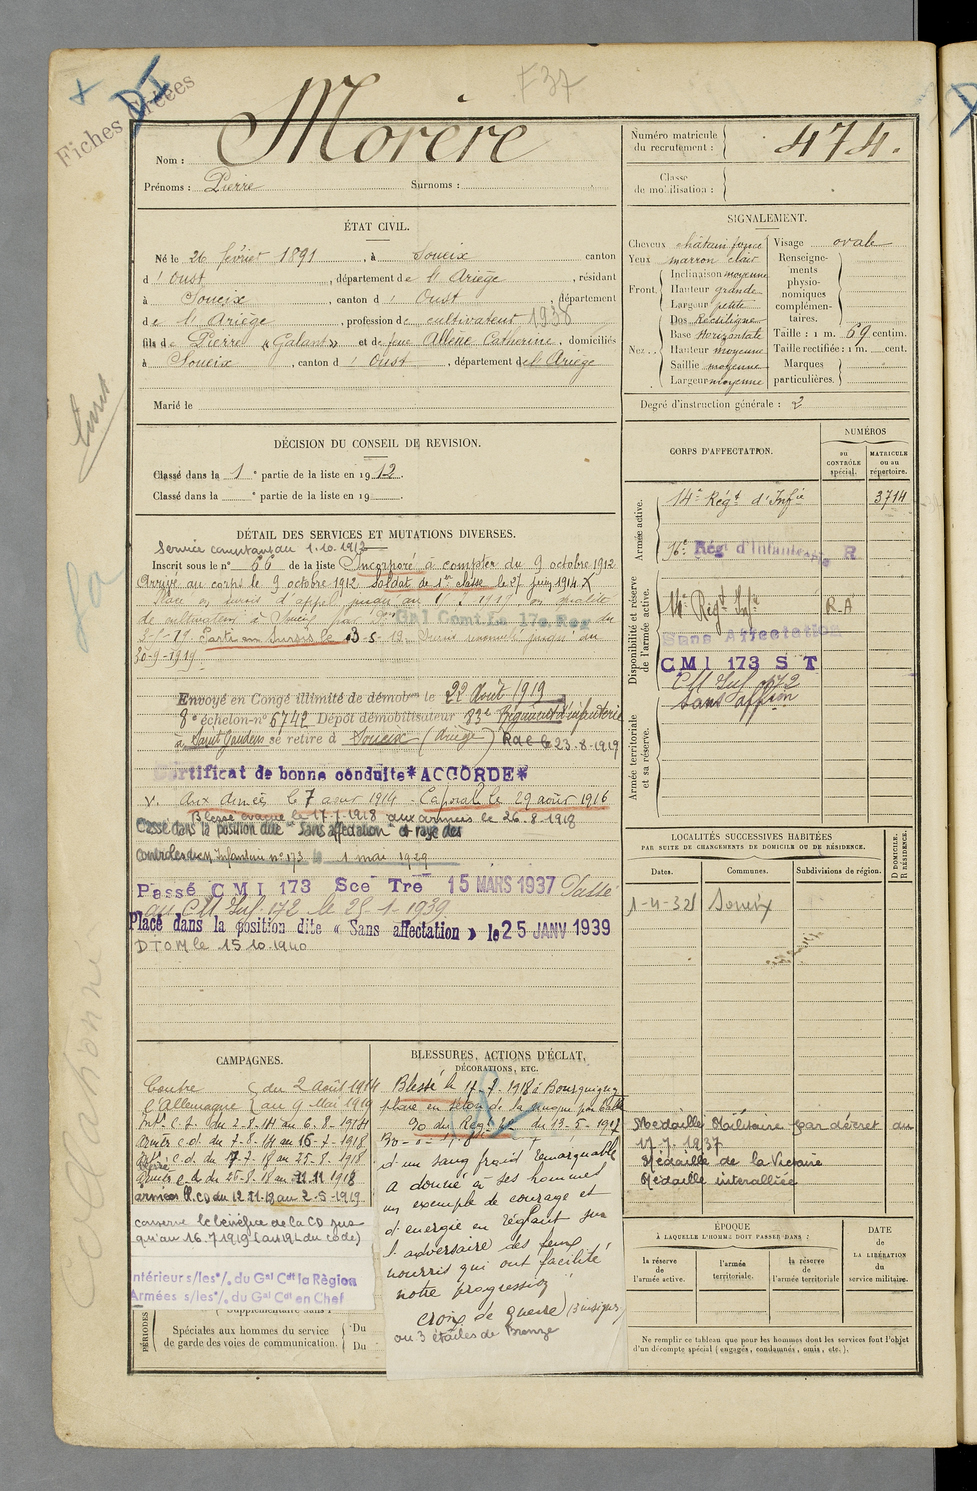 F37
Fiches créées
Nom : Morère
Prénoms : Pierre Surnoms :
Numéro matricule du recrutement : 474.
Classe de mobilisation :
ÉTAT CIVIL.
Né le 26 février 1891, à Soueix canton
d' Oust, département de l'Ariège, résidant
à Soueix, canton d' Oust, département
de l'Ariège, profession de cultivateur 1938
fils de Pierre «Galant» et de feue Allène Catherine, domiciliés
à Soueix, canton d' Oust, département de l'Ariège
Marié le
SIGNALEMENT.
Cheveux châtain foncé
Yeux marron clair
Front. Inclinaison moyenne
Hauteur grande
Largeur petite
Nez.. Dos Rectiligne
Base Horizontale
Hauteur moyenne
Saillie moyenne
Largeur moyenne
Visage ovale
Renseignements physionomiques complémentaires.
Taille : 1 m. 69 centim.
Taille rectifiée : 1 m. cent.
Marques particulières.
Degré d'instruction générale : 2
DÉCISION DU CONSEIL DE REVISION.
Classé dans la 1e partie de la liste en 1912.
Classé dans la e partie de la liste en 19 .
DÉTAIL DES SERVICES ET MUTATIONS DIVERSES.
Service comptant du 1.10.1912
Inscrit sous le n° 66 de la liste Incorporé à compter du 9 octobre 1912
Arrivé au corps le 9 octobre 1912 Soldat de 1re classe le 27 juin 1914 X
Placé en sursis d'appel jusqu'au en qualité
de cultivateur à Soueix par Gal Comt La 17e Reg du
Parti en sursis le 13-5-19. Sursis renouvelé jusqu'au
30-9-1919
Envoyé en Congé illimité de démobon le 22 Août 1919
8e échelon n° 6742 Dépôt démobilisateur 83e Régiment d'infanterie
à Saint Gaudens se retire à Soueix (Ariège) Rac le 23.8.1919
Certificat de bonne conduite *ACCORDE*
V. Aux armées le 7 aout 1914 - Caporal le 29 août 1916
Blessé évacué le 17-7-1918 aux armées le 26.8.1918
Classé dans la position dite "Sans affectation" et rayé des
contrôles du CM Infanterie n° 173 le 1 mai 1929
Passé CMI 173 Sce Tre 15 MARS 1937 Passé
au CM Inf. 172 le 25-1-1939
Placé dans la position dite « Sans affectation » le 25 JANV 1939
DTOM le 15.10.1940
CORPS D'AFFECTATION.
NUMÉROS
au CONTRÔLE spécial.
MATRICULE ou au répertoire.
Armée active.
14e Régt d'Infie 3714
96e Régt d'Infanterie R
Disponibilité et réserve de l'armée active.
14e Régt Infie R.A
Sans Affectation
CMI 173 S T
CM Inf. 172
Sans affon
Armée territoriale et sa réserve.
LOCALITÉS SUCCESSIVES HABITÉES
PAR SUITE DE CHANGEMENTS DE DOMICILE OU DE RÉSIDENCE.
Dates. Communes. Subdivisions de région.
D DOMICILE. R RÉSIDENCE.
1-4-32 Soueix
CAMPAGNES.
Contre du 2 Août 1914
l'Allemagne au 9 Mai 1919
Intr C.S. du 2-8-14 au 6-8-1914
Armées c.d. du 7-8-14 au 16-7-1918
c.d. du 17-7-18 au 25-8-1918
Armées c.d. du 26-8-18 au 11.11 1918
armées CD du 12.11-18 au 2-5-1919
conserve le bénéfice de la CD jus-
qu'au 16.7.1919 (art 19 du code)
Intérieur s/les°/. du Gal Cdt la Région
Armées s/les°/. du Gal Cdt en Chef
Supplémentaire dans :
PÉRIODES
Spéciales aux hommes du service de garde des voies de communication.
Du
Du
BLESSURES, ACTIONS D'ÉCLAT,
DÉCORATIONS, ETC.
Blessé le 17-7-1918 à Bourguigny
plaie en séton de la nuque par balle
O du Regt n° du 13-5-1917
d'un sang froid remarquable
a donné à ses hommes
un exemple de courage et
d'energie en réglant sur
l'adversaire des feux
nourris qui ont facilité
notre progression
croix de guerre
ou 3 étoiles de Bronze
Médaille Militaire par décret du
17.7.1937
Médaille de la Victoire
Médaille interalliée
ÉPOQUE
À LAQUELLE L'HOMME DOIT PASSER DANS :
la réserve de l'armée active.
l'armée territoriale.
la réserve de l'armée territoriale
DATE de LA LIBÉRATION du service militaire.
Ne remplir ce tableau que pour les hommes dont les services font l'objet
d'un décompte spécial (engagés, condamnés, omis, etc.).
Collationné